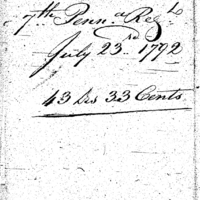 7th Penna Regt
July 23rd 1792
43 Ds 33 Cents